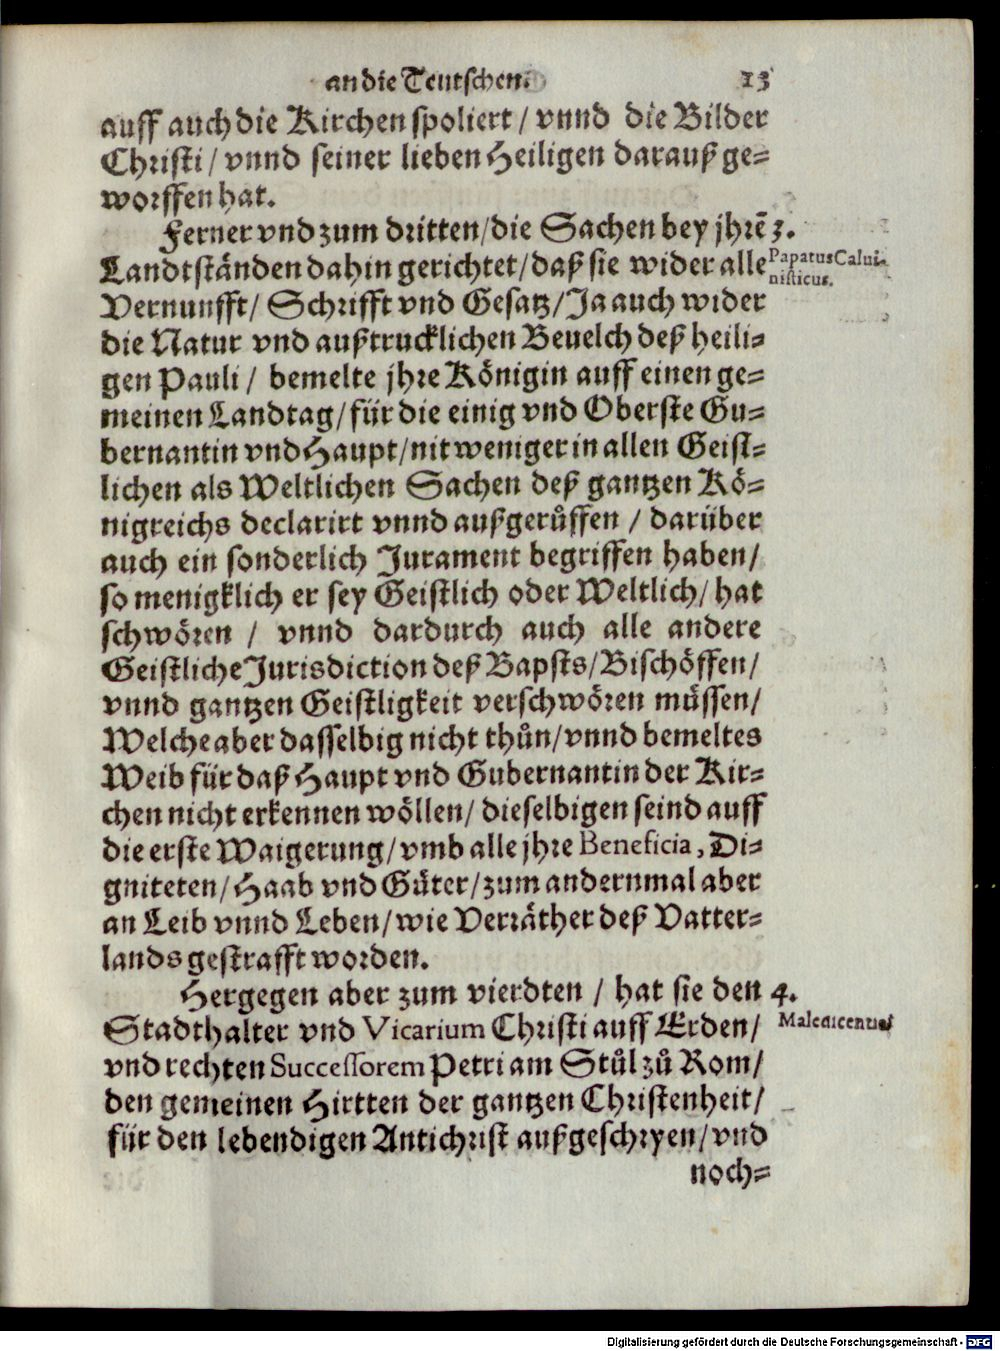 an die Teutschen. 13
auff auch die Kirchen spoliert / vnnd die Bilder
Christi / vnnd seiner lieben Heiligen darauß ge⸗
worffen hat.
Ferner vnd zum dritten / die Sachen bey jhrẽ 3.
Landtständen dahin gerichtet / daß sie wider alle
Papatus Calui-
nisticus.
Vernunfft / Schrifft vnd Gesatz / Ja auch wider
die Natur vnd außtrucklichen Beuelch deß heili⸗
gen Pauli / bemelte jhre Königin auff einen ge⸗
meinen Landtag / für die einig vnd Oberste Gu⸗
bernantin vnd Haupt / nit weniger in allen Geist⸗
lichen als Weltlichen Sachen deß gantzen Kö⸗
nigreichs declarirt vnnd außgerůffen / darüber
auch ein sonderlich Jurament begriffen haben /
so menigklich er sey Geistlich oder Weltlich / hat
schwören / vnnd dardurch auch alle andere
Geistliche Jurisdiction deß Bapsts / Bischöffen /
vnnd gantzen Geistligkeit verschwören müssen /
Welche aber dasselbig nicht thůn / vnnd bemeltes
Weib für daß Haupt vnd Gubernantin der Kir⸗
chen nicht erkennen wöllen / dieselbigen seind auff
die erste Waigerung / vmb alle jhre Beneficia, Di⸗
gniteten / Haab vnd Güter / zum andernmal aber
an Leib vnnd Leben / wie Verräther deß Vatter⸗
lands gestrafft worden.
Hergegen aber zum vierdten / hat sie den 4.
Stadthalter vnd Vicarium Christi auff Erden /
vnd rechten Successorem Petri am Stůl zů Rom /
den gemeinen Hirtten der gantzen Christenheit /
für den lebendigen Antichrist außgeschryen / vnd
noch⸗
Digitalisierung gefördert durch die Deutsche Forschungsgemeinschaft - DFG